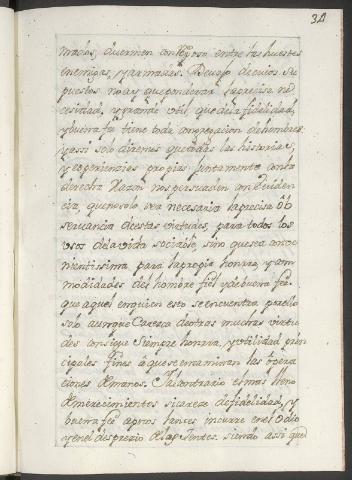 34
mados, duermen con Reposo entre las huestes
enemigas, y armadas. Devajo de cuios su
puestos no ay que ponderar la precisa ne
cesidad, y grande util, que de la fidelidad,
y buena fee tiene toda congregacion de hombres
y assi solo diremos que todas las historias,
y experiencias propias juntamente con la
derecha Razon nos persuaden con Eviden
cia, que no solo sea necesaria la precisa ob
servancia de estas virtudes, para todos los
usos de la vida sociable, sino que sea conve
nientissima para la propia honrra, y com
modidades del hombre fiel y de buena fee:
que aquel en quien esto se encuentra practico
solo aunque Caresca de otras muchas virtu
des consigue siempre honrra, y utilidad prin
cipales fines a que se encaminan las opera
ciones humanas. Al contrario el mas lleno
de merecimientos si carece de fidelidad, y
buena fee a pocos lances incurre en el Odio
y en el desprezio de las Gentes. siendo assi que